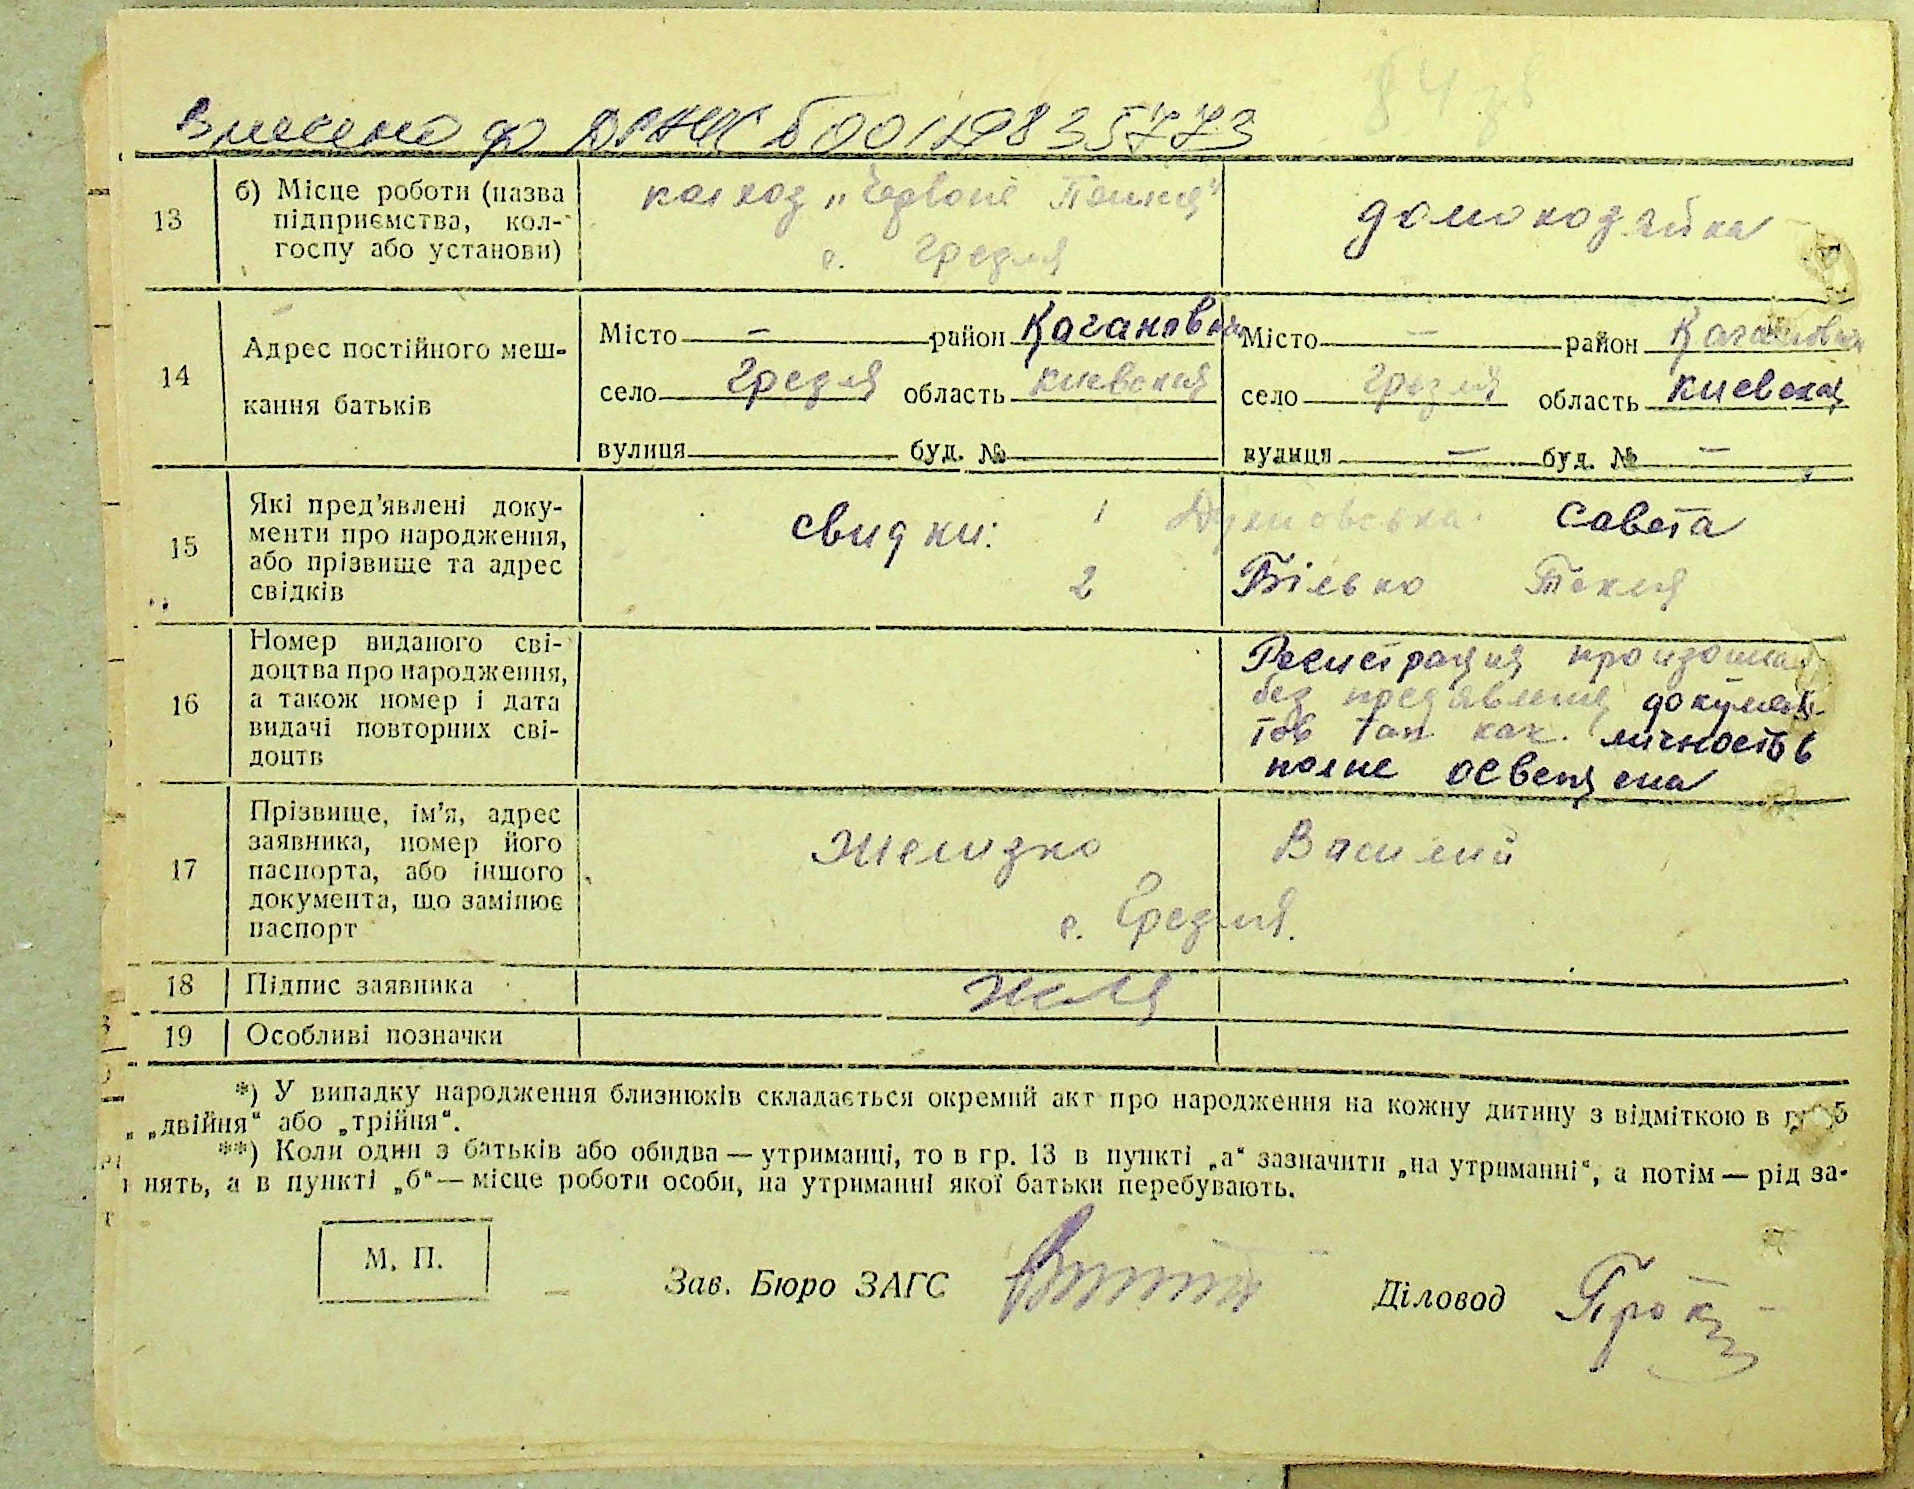 Внесено до ДРАЦС 00119835773
13
б) Місце роботи (назва підприємства, кол-
госпу або установи)
колхоз „Червоне Полісся"
с. Грезля
домохозяйка
14
Адрес постійного меш-
кання батьків
Місто — район Каганович
село Грезля область киевская
вулиця буд. №
Місто — район Каганович
село Грезля область киевская
вулиця — буд. № —
15
Які пред'явлені доку-
менти про народження,
або прізвище та адрес
свідків
свидки: 1 Савета
2 Білько Текля
16
Номер виданого сві-
доцтва про народження,
а також номер і дата
видачі повторних сві-
доцтв
Регистрация произошла
без предявления докумен-
тов так как личность
полне освещена
17
Прізвище, ім'я, адрес
заявника, номер його
паспорта, або іншого
документа, що замінює
паспорт
Желизко Василий
с. Грезля.
18 Підпис заявника
19 Особливі позначки
*) У випадку народження близнюків складається окремий акт про народження на кожну дитину з відміткою в гр. 5
„двійня" або „трійня".
**) Коли один з батьків або обидва — утриманці, то в гр. 13 в пункті „а" зазначити „на утриманні", а потім — рід за-
нять, а в пункті „б" — місце роботи особи, на утриманні якої батьки перебувають.
М. П.
Зав. Бюро ЗАГС
Діловод